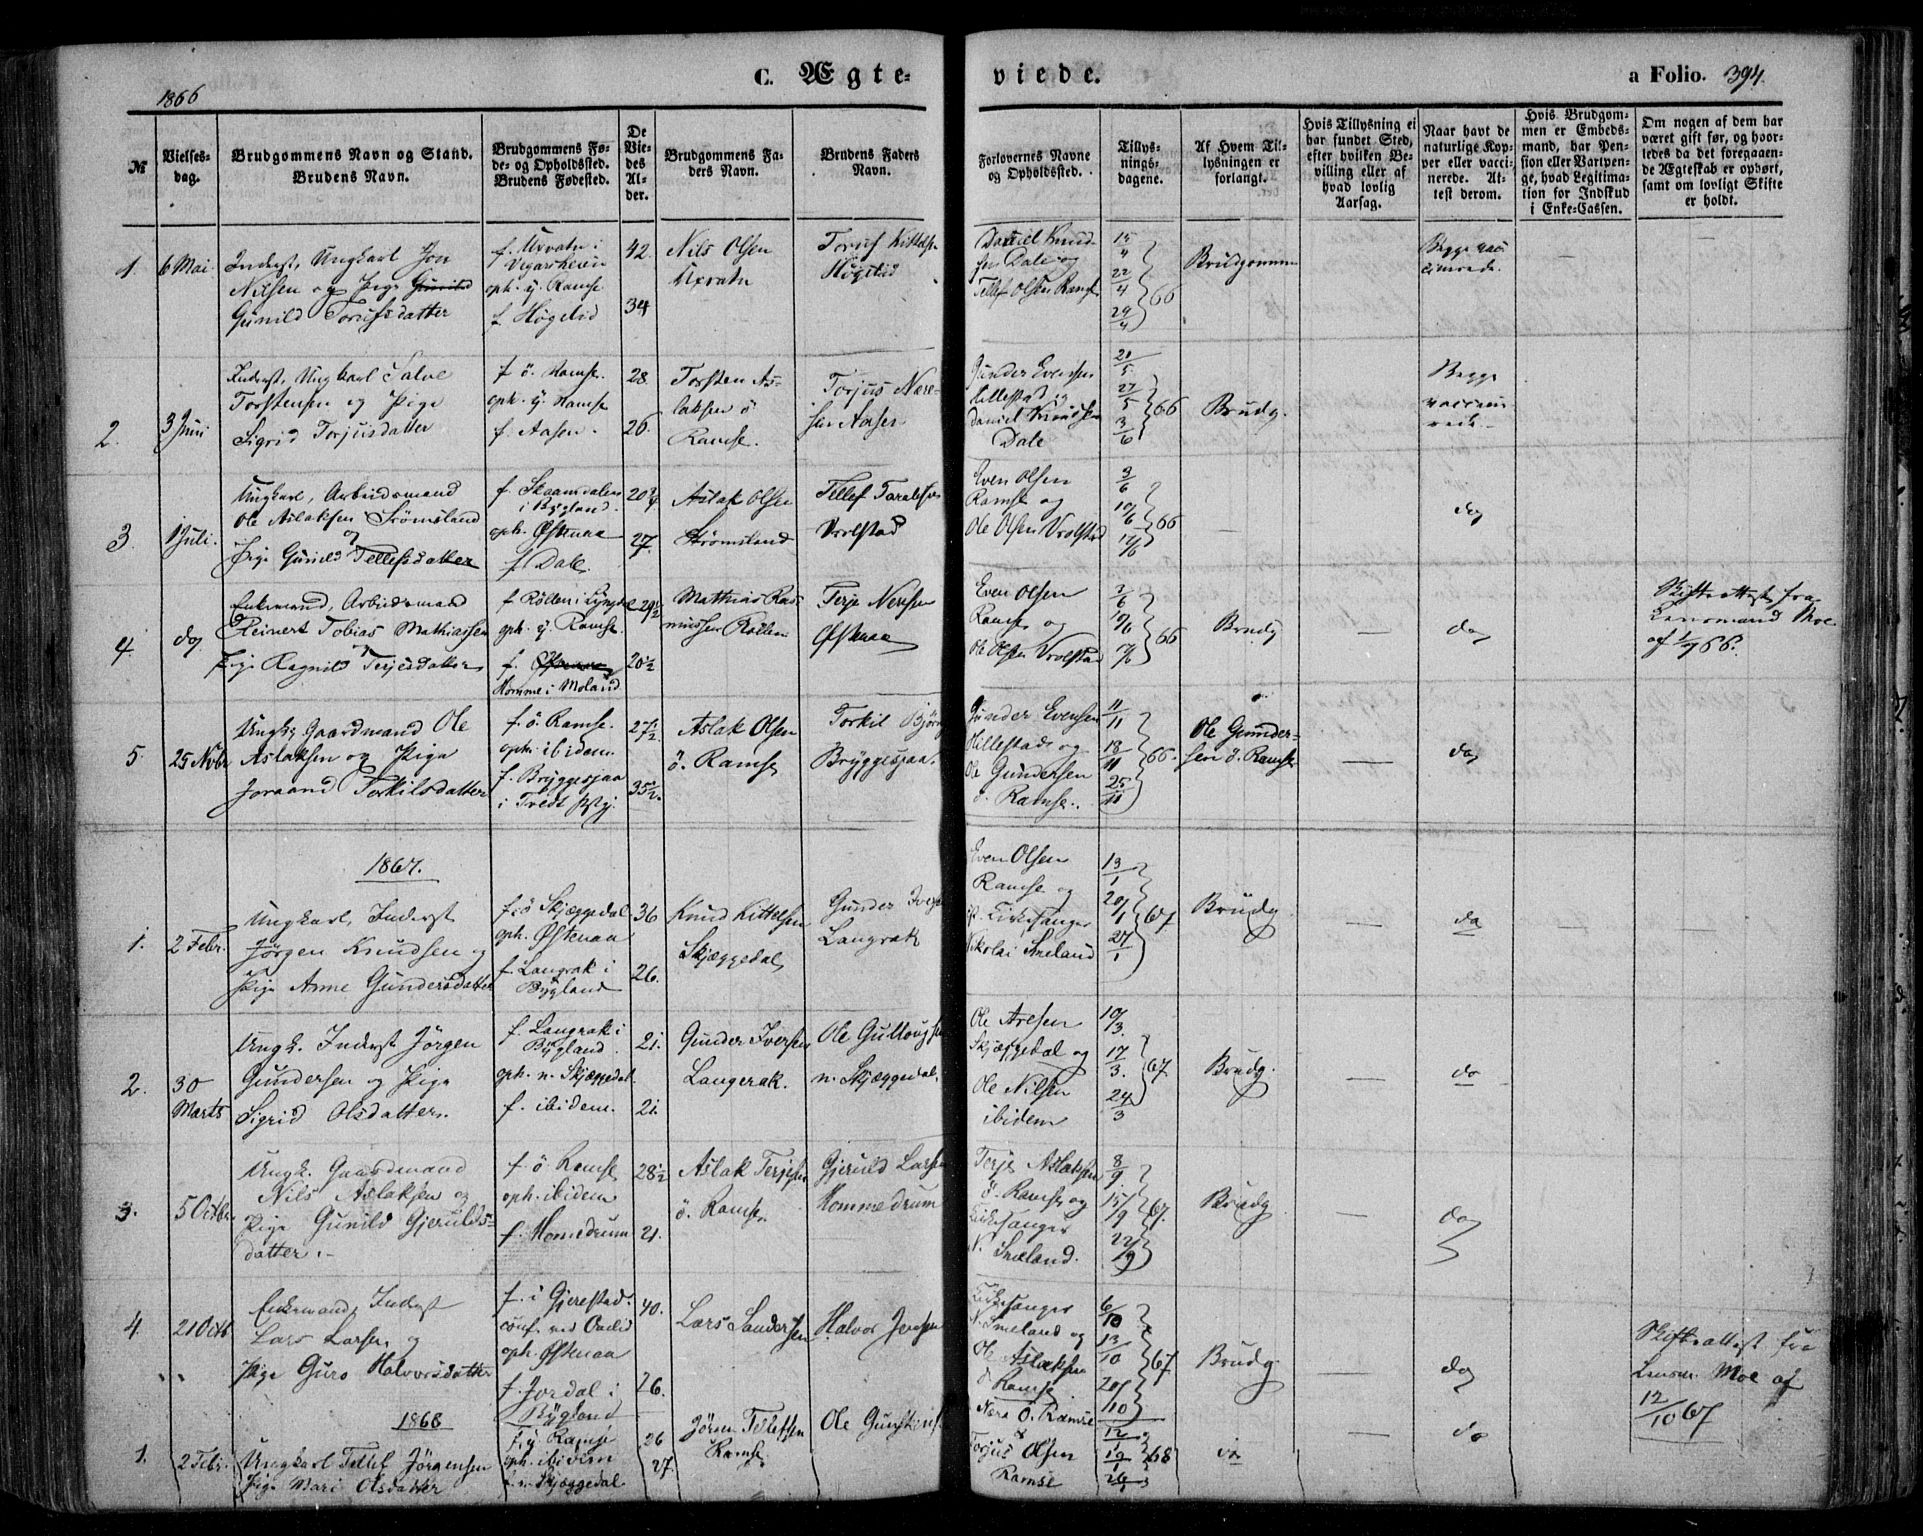 1866
C. Ægte-
viede.
a Folio. 394.
№
Vielses-
dag.
Brudgommens Navn og Stand.
Brudens Navn.
Brudgommens Fø-
de- og Opholdssted.
Brudens Fødested.
De
Vie-
des
Al-
der.
Brudgommens Fa-
ders Navn.
Brudens Faders
Navn.
Forlovernes Navne
og Opholdssted.
Tillys-
nings-
dagene.
Af Hvem Til-
lysningen er
forlangt.
Hvis Tillysning ei
har fundet Sted,
efter hvilken Be-
villing eller af
hvad lovlig
Aarsag.
Naar havt de
naturlige Kop-
per eller vacci-
nerede. At-
test derom.
Hvis Brudgom-
men er Embeds-
mand, har Pen-
sion eller Vartpen-
ge, hvad Legitima-
tion for Indskud
i Enke-Cassen.
Om nogen af dem har
været gift før, og hvor-
ledes da det foregaaen-
de Ægteskab er ophørt,
samt om lovligt Skifte
er holdt.
1.
6 Mai
Inderst, Ungkarl Jon
Nilsen og Pige
Gunild Torufsdatter
f. Uxvatn i
Vegarsheien
oph. y. Ramse
f. Høgelid
42.
34
Nils Olsen
Uxvatn
Toruf Kittelsen
Høgelid
Daniel Knud-
sen Dale og
Tellef Olsen Ramse
15/4
22/4
29/4
66
Brudgommen
Begge vac-
cinerede.
2.
3 Juni
Inderst, Ungkarl Salve
Torstensen og Pige
Sigrid Torjusdatter
f. ö. Ramse.
oph. y. Ramse
f. Aasen.
28.
26.
Torsten As-
laksen ö
Ramse.
Torjus Nere-
sen Aasen
Gunder Evensen
Hillestad og
Daniel Knudsen
Dale
20/5
27/5
3/6
66
Brudg.
Begge
vaccine-
rede.
3.
1 Juli.
Ungkarl, Arbeidsmand
Ole Aslaksen Strømsland
og
Pige Gunild Tellefsdatter
f. Skaamdalen
i Bygland.
oph. Østenaa
f. Dale.
20¾
27.
Aslak Olsen
Strømsland
Tellef Taralsen
Vrolstad
Even Olsen
Ramse og
Ole Olsen Vrolstad
3/6
10/6
17/6
66
do
4.
do
Enkemand, Arbeidsmand
Reinert Tobias Mathiassen
og
Pige Ragnild Terjesdatter
f. Röllen i Lyngdal
oph. y. Ramse.
f.
Homme i Moland
29½
20½
Matthias Ras-
mussen Röllen
Terje Neresen
Østenaa
Even Olsen
Ramse og
Ole Olsen Vrolstad
3/6
10/6
17/6
66
Brudg
do
Skifteattest fra
Lensmand Moe
af 1/7 66.
5.
25 Nvbr
Ungk. Gaardmand Ole
Aslaksen og Pige
Joraand Torkilsdatter
f. ö. Ramse.
oph. ibidem.
f. Bryggesaa
i Tvedt
27½.
35½.
Aslak Olsen
ö. Ramse
Torkil Bjørn
Bryggesaa.
Gunder Evensen
Hillestad og
Ole Gundersen
ö. Ramse.
11/11
18/11
25/11
66.
Ole Gunder-
sen ö. Ramse
do
1867.
1.
2 Febr.
Ungkarl, Inderst
Jørgen Knudsen og
Pige Anne Gundersdatter
f. ö Skjæggedal
oph. Østenaa
f. Langrak i
Bygland
36
26.
Knud Kittelsen
Skjæggedal
Gunder Ivers
Langrak
Even Olsen
Ramse og
Kirkesanger
Nikolai Smeland
13/1
20/1
27/1
67
Brudg
do
2.
30
Marts
Ungk. Inderst Jörgen
Gundersen og Pige
Sigrid Olsdatter.
f. Langrak i
Bygland.
oph. n. Skjæggedal.
f. ibidem.
21.
21.
Gunder Iversen
Langerak.
Ole Gulloug
n. Skjæggedal.
Ole Aresen
Skjæggedal og
Ole Nilsen
ibidem
10/3.
17/3.
24/3
67
Brudg.
do
3.
5 Octbr
Ungk. Gaardmand
Nils Aslaksen og
Pige Gunild Gjerulds-
datter.
f. ö Ramse
oph. ibidem
f. Homedrum
28½
21.
Aslak Terjesen
ö. Ramse
Gjeruld Larsen
Homme drum
Terje Aslaksen
ö. Ramse og
Kirkesanger
N. Smeland.
8/9.
15/9
22/9
67.
Brudg
do
4.
21 Octb
Enkemand, Inderst
Lars Larsen og
Pige Guro Halvorsdatter
f. i Gjerestad.
conf. ved
oph. Østenaa
f. Jordal i
Bygland
40.
26.
Lars Sandersen
Halvor Jensen
Kirkesanger
N. Smeland og
Ole Aslaksen
ö Ramse
6/10
13/10
20/10
67
Brudg.
do
Skifteattest fra
Lensm. Moe af
12/10 67
1868
1.
2 Febr.
Ungkarl Tellef Jörgensen
Pige Mari Olsdatter
f. y. Ramse
oph. ibidem
f. n. Skjæggedal
26
27.
Jören Tellefsen
Ramse
Ole Gunstens
Nera O. Ramse
Torjus Olsen
Ramse
12/1
19/1
26/1
68
do
do